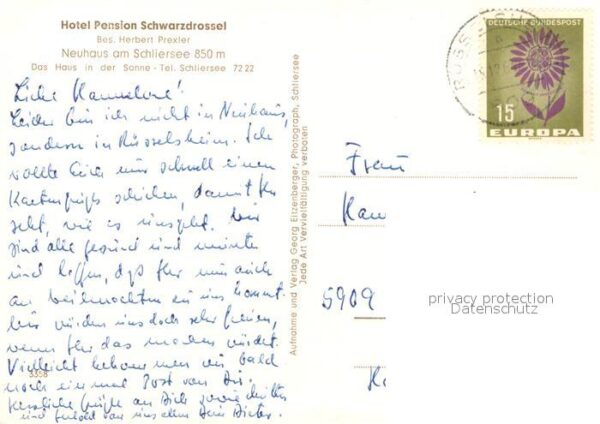 Hotel Pension Schwarzdrossel
Bes. Herbert Prexler
Neuhaus am Schliersee 850 m
Das Haus in der Sonne - Tel. Schliersee 72 22
Liebe Hannelore!
Leider bin ich nicht in Neuhaus,
sondern in Rüsselsheim. Ich
wollte Euch nur schnell einen
Kartengruß schicken, damit Ihr
seht, wie es uns geht. Wir
sind alle gesund und munter
und hoffen, daß Ihr nun auch
an Weihnachten zu uns kommt.
Wir würden uns doch sehr freuen,
wenn Ihr das machen würdet.
Vielleicht bekommen wir bald
noch einmal Post von Dir.
Herzliche Grüße an Dich sowie
und von uns allen Dein Dieter.
3358
Aufnahme und Verlag Georg Eitzenberger, Photograph, Schliersee
Jede Art Vervielfältigung verboten
DEUTSCHE BUNDESPOST
15
EUROPA
Frau
Han
5909
privacy protection
Datenschutz